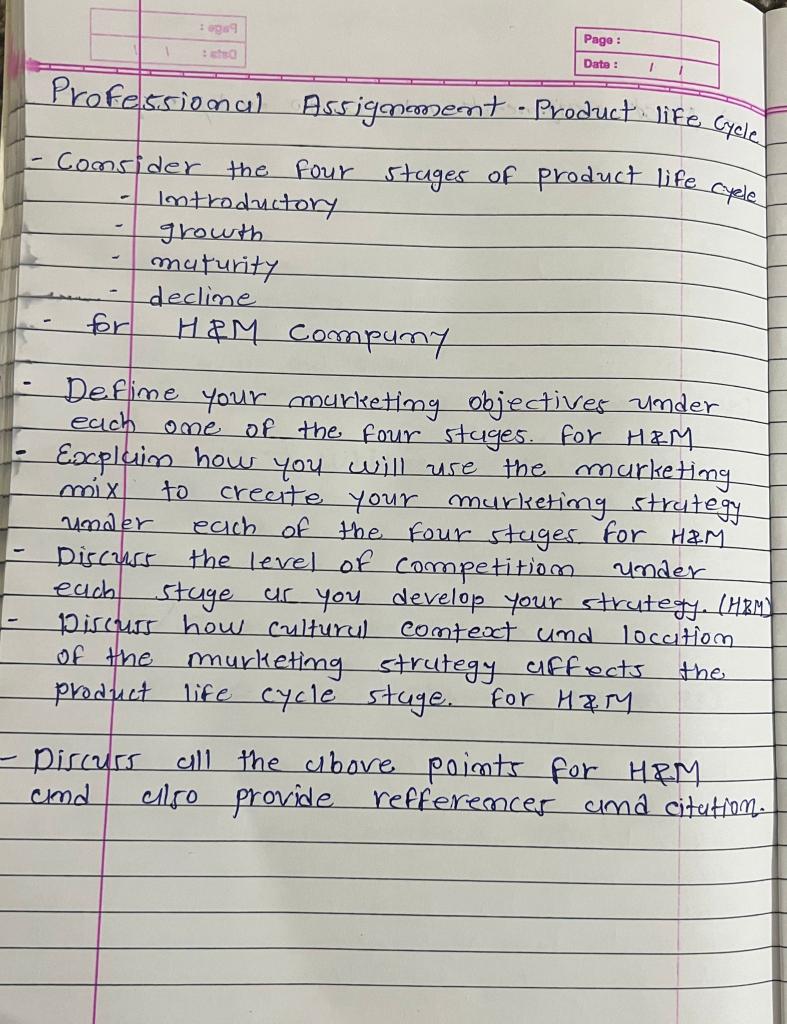 Page :
Date :
Page :
Date : / /
Professional Assignment - Product life Cycle
- Consider the four stages of product life cycle
- Introductory
- growth
- maturity
- decline
- for H&M Company
- Define your marketing objectives under
each one of the four stages. for H&M
- Explain how you will use the marketing
mix to create your marketing strategy
under each of the four stages for H&M
- Discuss the level of competition under
each stage as you develop your strategy. (H&M)
- Discuss how cultural context and location
of the marketing strategy affects the
product life cycle stage. for H&M
- Discuss all the above points for H&M
and also provide refferences and citation.